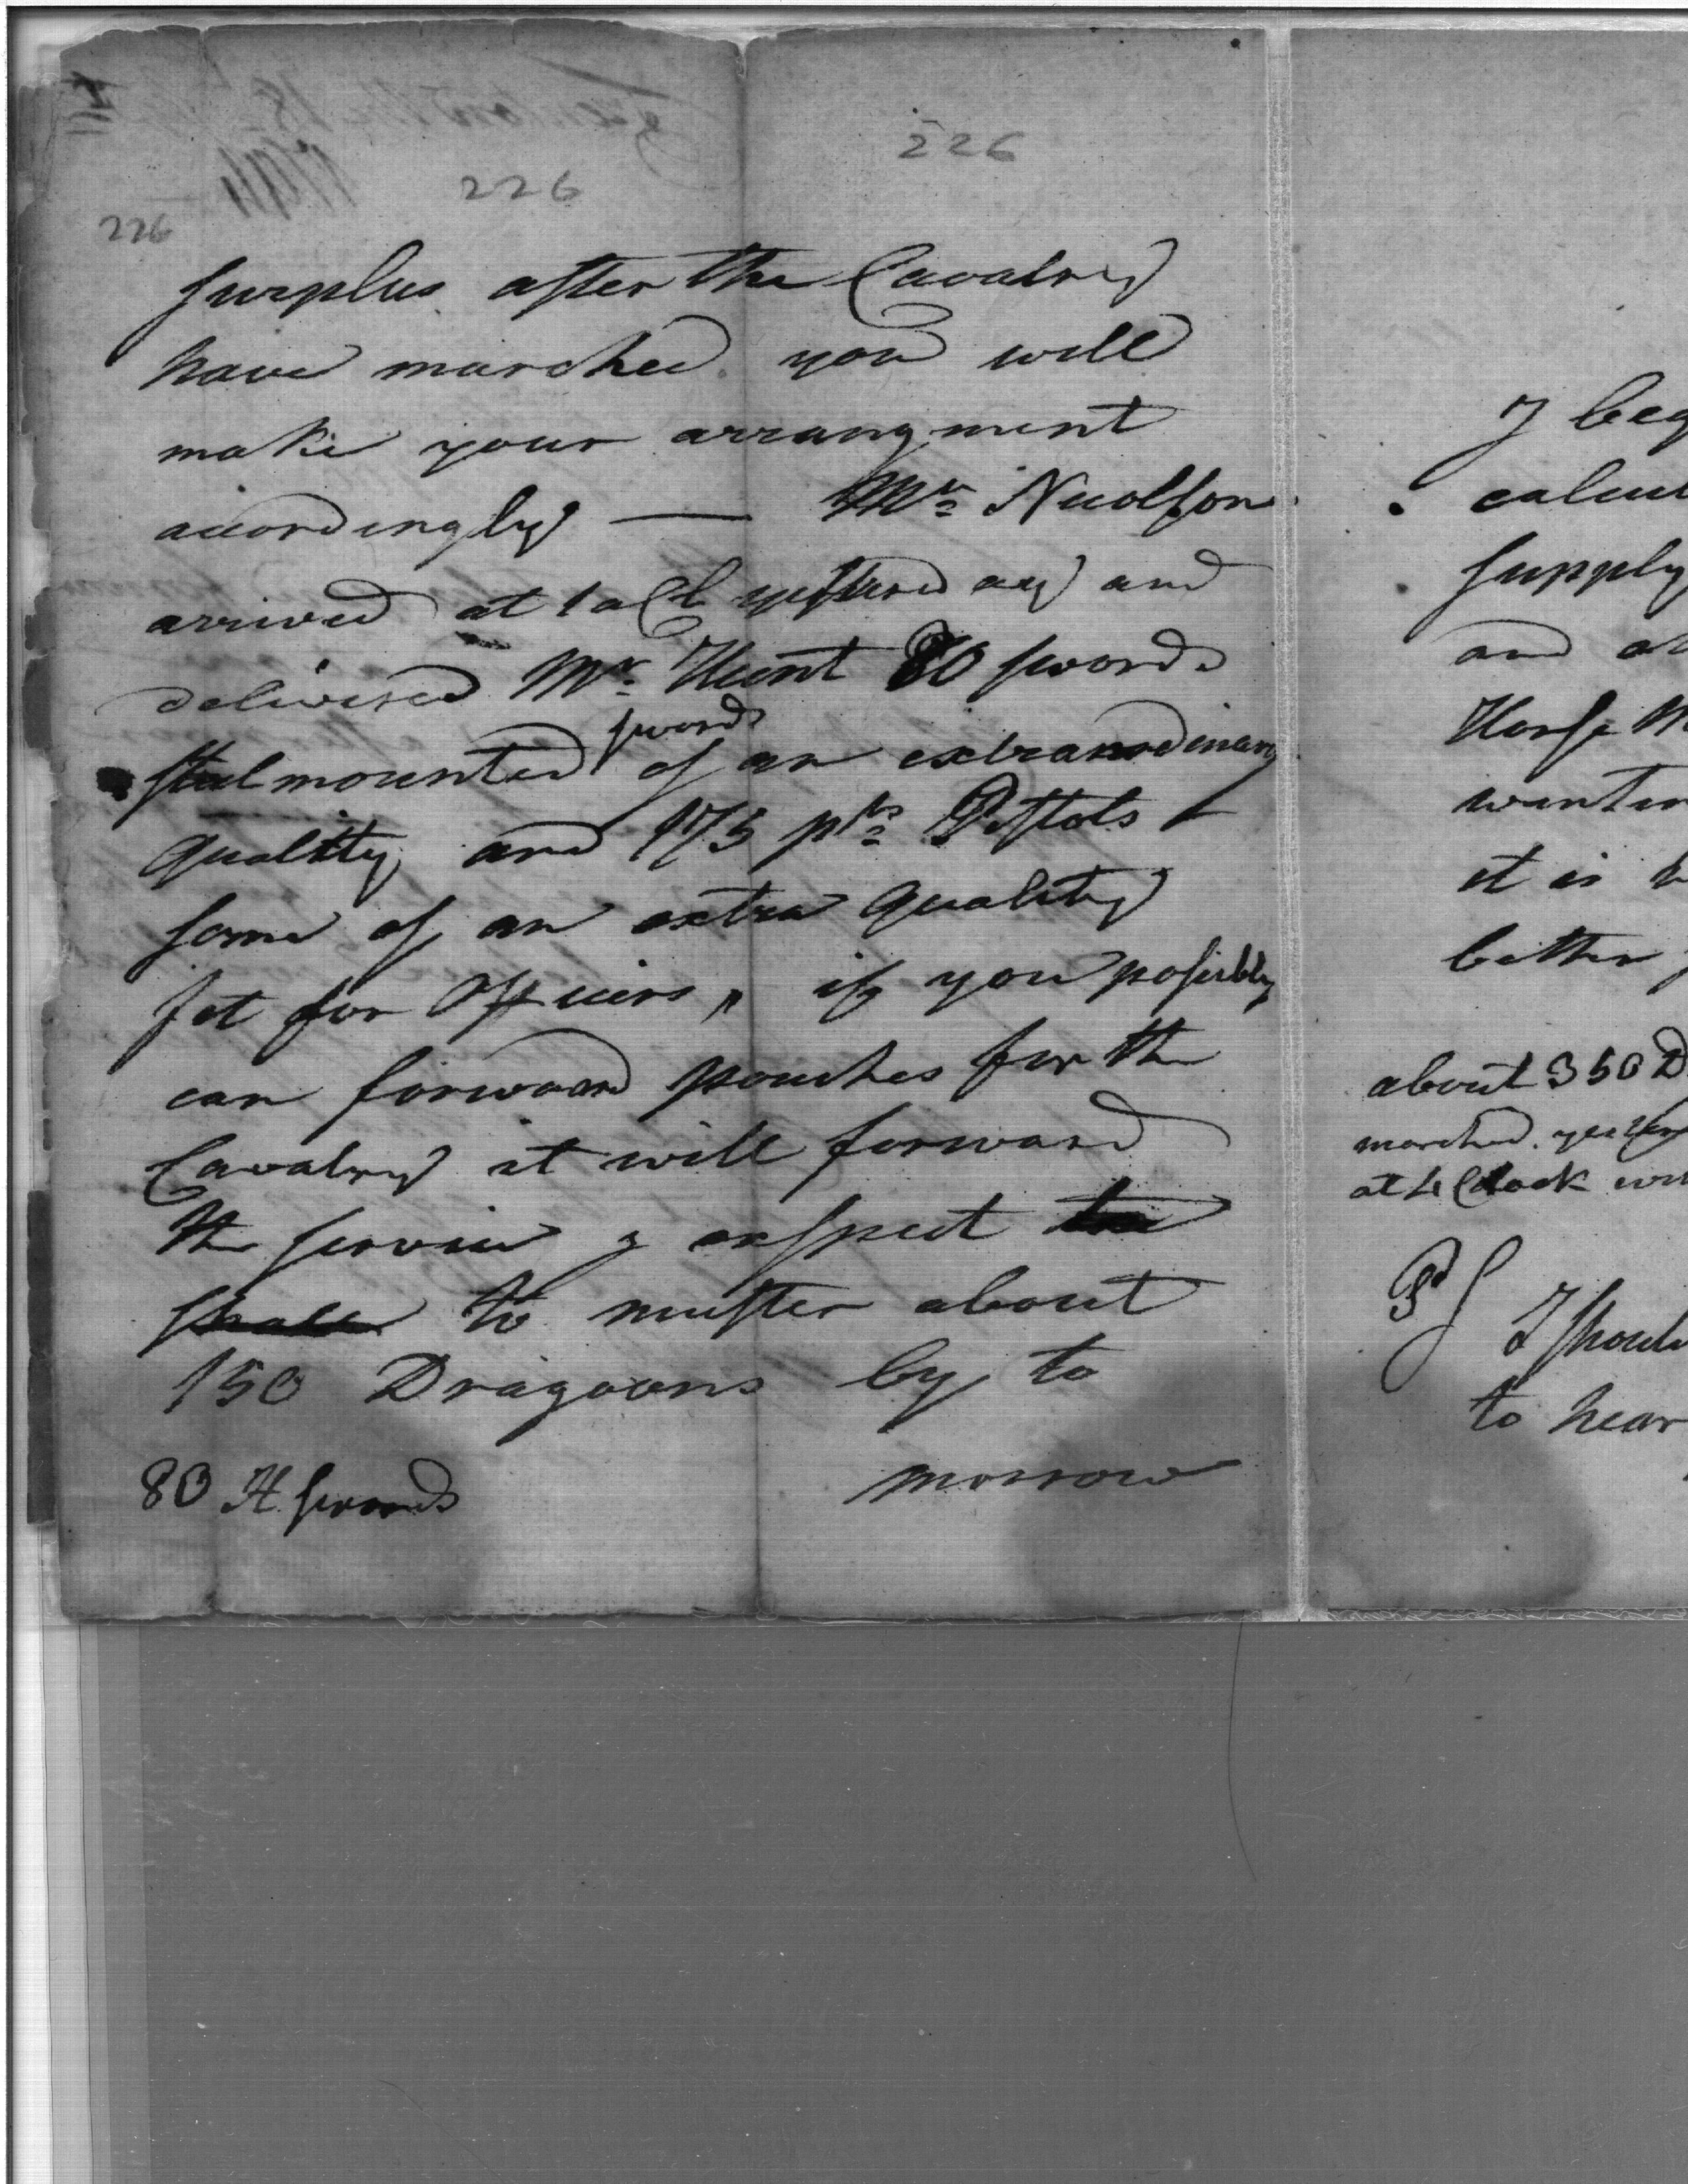 226
226
226
surplus after the Cavalry
have marched you will
make your arrangment
accordingly — Mr Nicolson
arrived at 1 oCl yesterd ay and
delivered Mr. Hunt 80 swords
steel mounted swords of an extraordinary
quality and 175 prs Pistols
some of an extra quality
fit for Officers, if you possibly
can forward pouches for the
Cavalry it will forward
the service I exspect
shall to muster about
150 Dragoons by to
morrow
80 H. swords
I beg
calcul
supply
and at
Horse M
winter
it is
better
about 350 D
marched. yester
at 4 Clock
Ps
I shoul
to hear